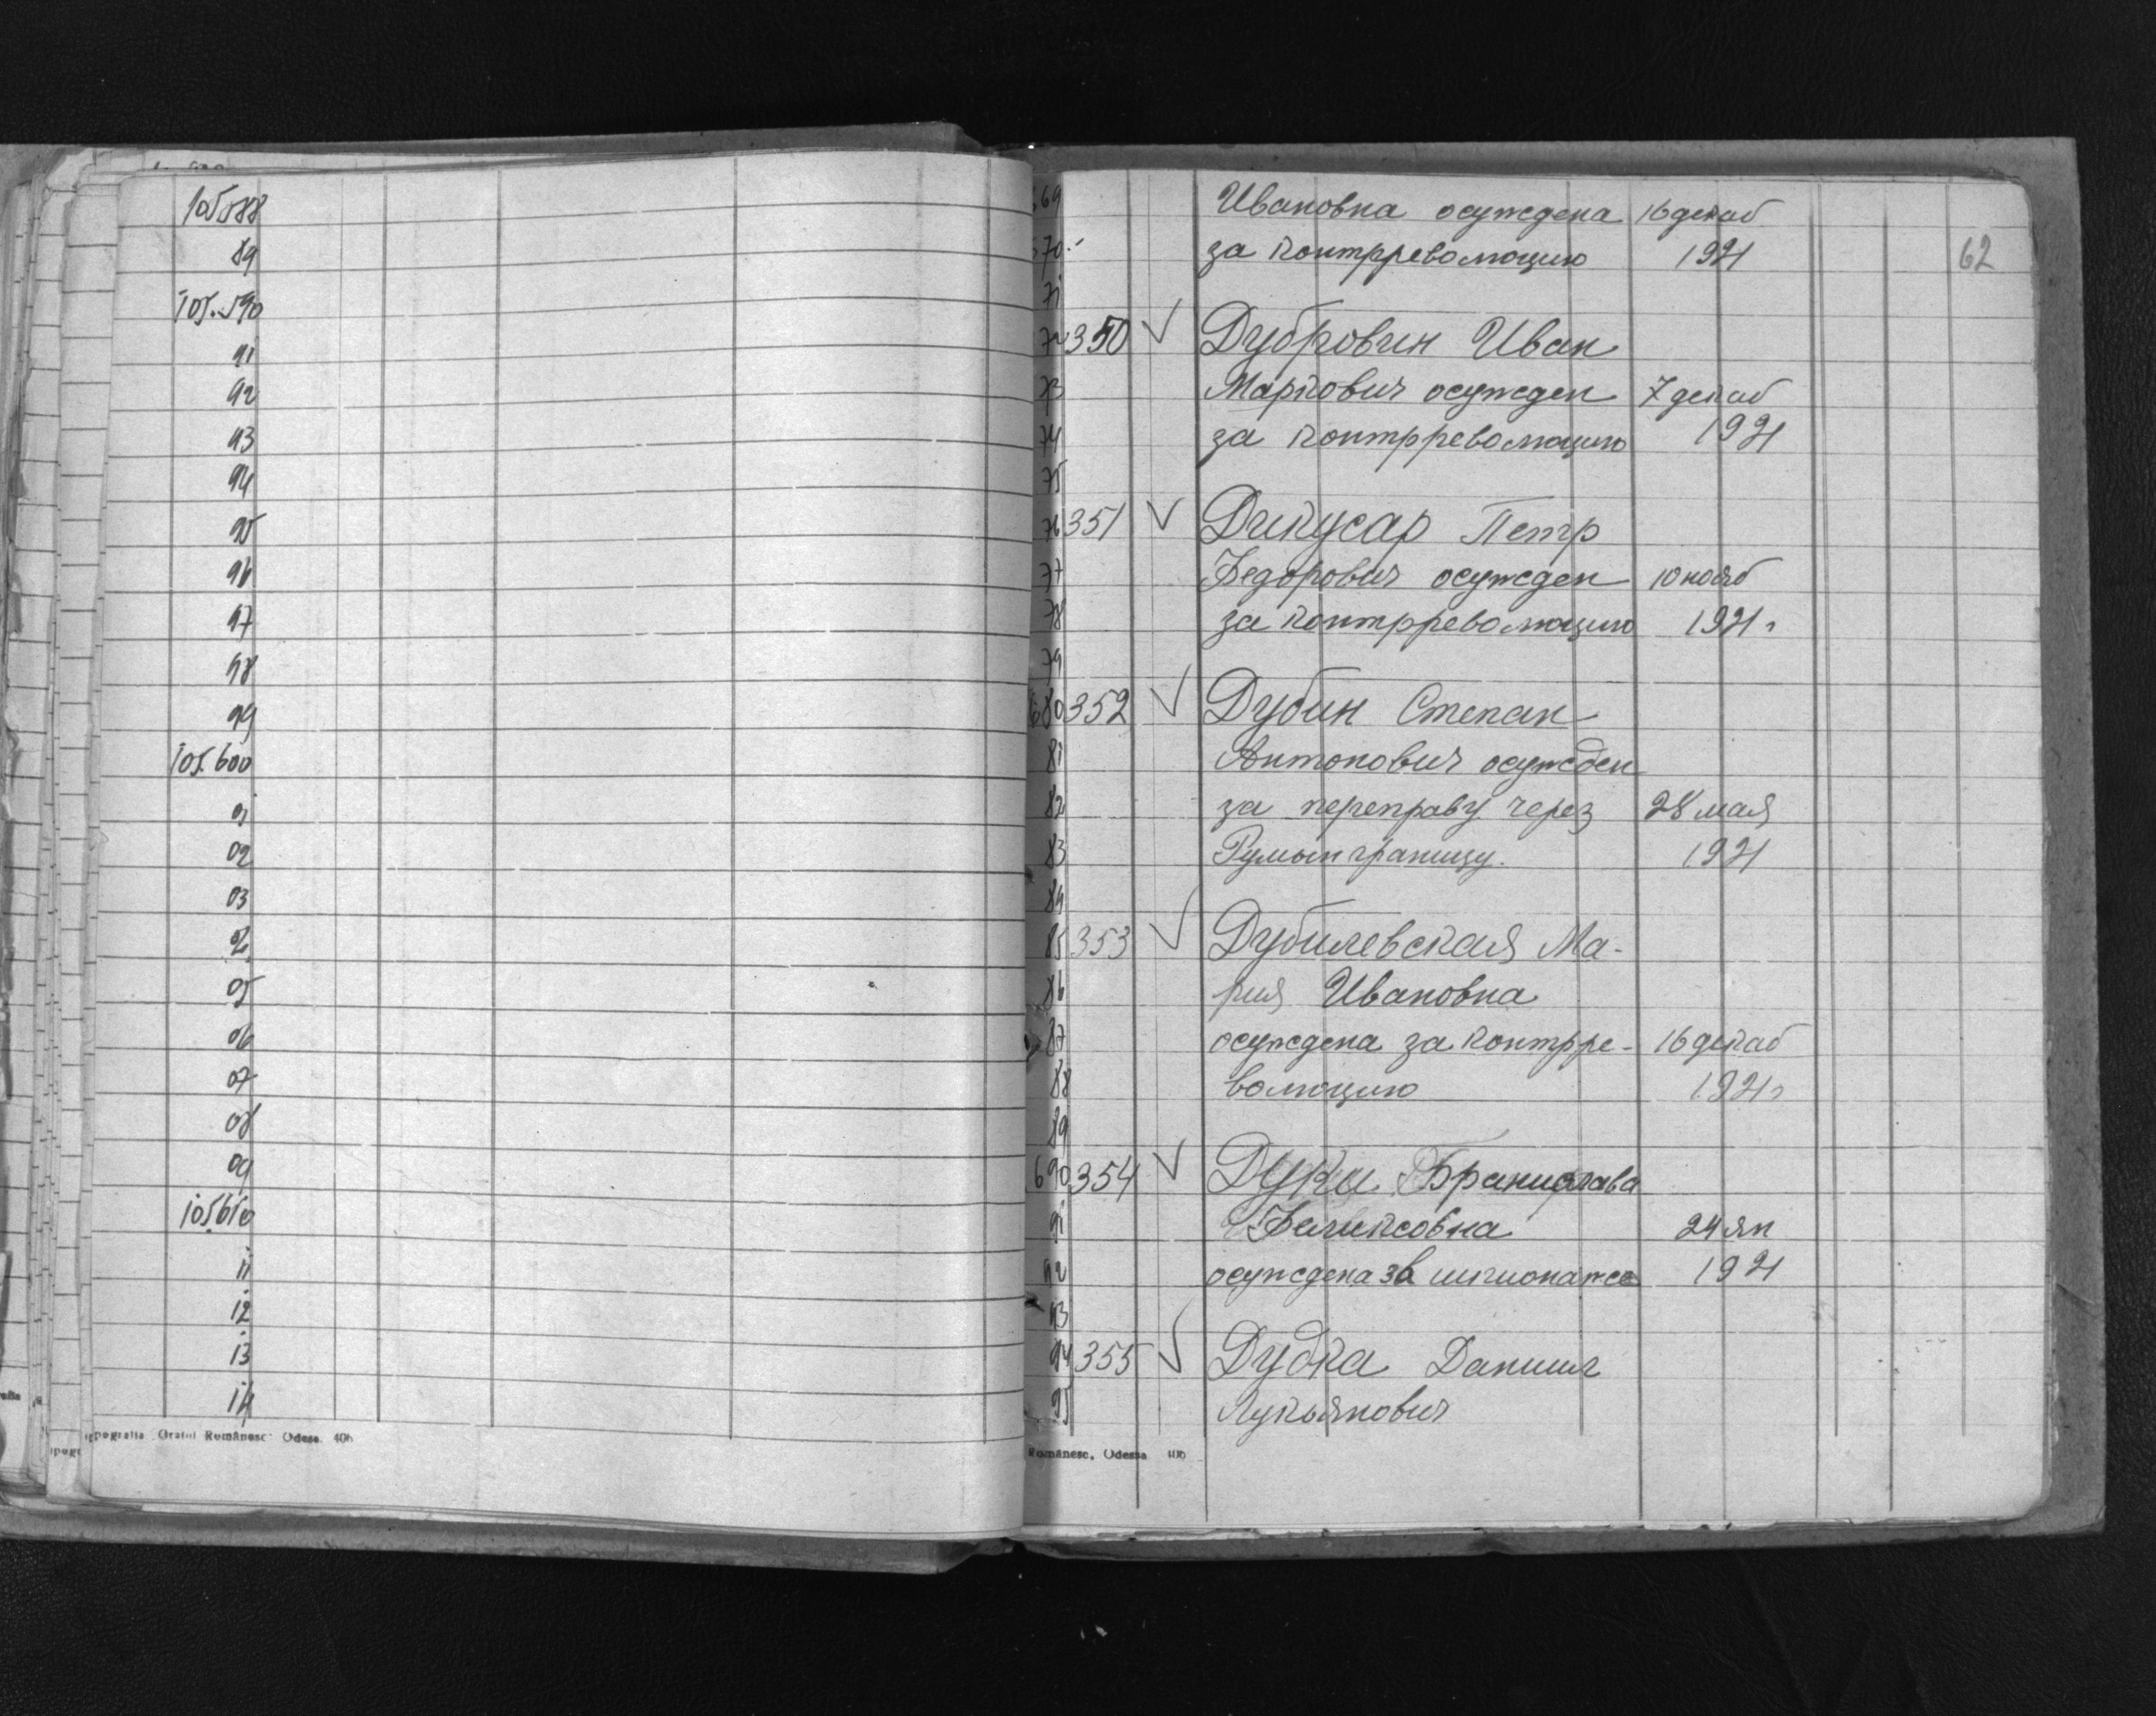 105588
89
105.590
91
92
93
94
95
96
97
98
99
105.600
01
02
03
04
05
06
07
08
09
105610
11
12
13
14
Românesc Odesa. 406
62
69 Ивановна осуждена 16 декаб
70 за контрреволюцию 1921
71
72 350 Дубровин Иван
73 Маркович осужден 7 декаб
74 за контрреволюцию 1921
75
76 351 Дикусар Петр
77 Федорович осужден 10 нояб
78 за контрреволюцию 1921 г
79
680 352 Дубин Степан
81 Антонович осужден
82 за переправу через 28 мая
83 Румын границу. 1921
84
85 353 Дубилевская Ма-
86 рия Ивановна
87 осуждена за контрре- 16 декаб
88 волюцию 1921 г
89
690 354 Дуки Бранислава
91 Феликсовна 24 ян
92 осуждена за шпионаже 1921
93
94 355 Дудка Даниил
95 Лукьянович
Românesc, Odessa 406